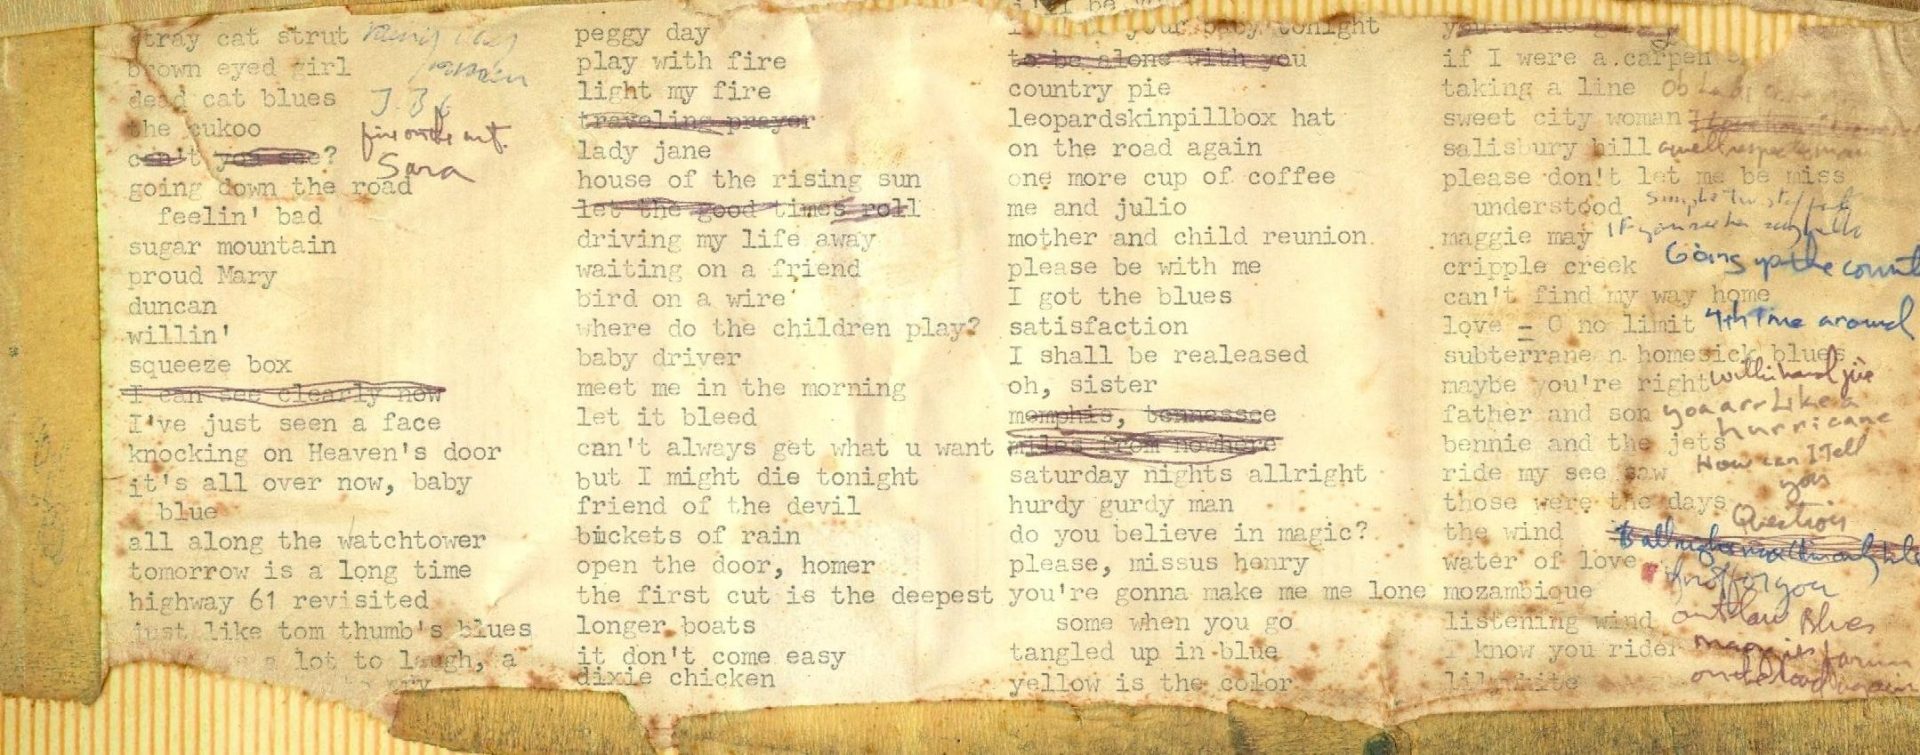 stray cat strut
brown eyed girl
dead cat blues
J.B.
the cukoo
fire on the mt.
can't you see?
Sara
going down the road
feelin' bad
sugar mountain
proud Mary
duncan
willin'
squeeze box
I can see clearly now
I've just seen a face
knocking on Heaven's door
it's all over now, baby
blue
all along the watchtower
tomorrow is a long time
highway 61 revisited
just like tom thumb's blues
a lot to laugh, a
peggy day
play with fire
light my fire
traveling prayer
lady jane
house of the rising sun
let the good times roll
driving my life away
waiting on a friend
bird on a wire
where do the children play?
baby driver
meet me in the morning
let it bleed
can't always get what u want
but I might die tonight
friend of the devil
buckets of rain
open the door, homer
the first cut is the deepest
longer boats
it don't come easy
dixie chicken
your baby tonight
to be alone with you
country pie
leopardskinpillbox hat
on the road again
one more cup of coffee
me and julio
mother and child reunion
please be with me
I got the blues
satisfaction
I shall be realeased
oh, sister
memphis, tennessee
miles from nowhere
saturday nights allright
hurdy gurdy man
do you believe in magic?
please, missus henry
you're gonna make me me lone
some when you go
tangled up in blue
yellow is the color
if I were a carpen
taking a line
sweet city woman
salisbury hill a well respected man
please don't let me be miss
understood simple twist of fate
maggie may If you see her say hello
cripple creek Going up the count
can't find my way home
love = 0 no limit 4th Time around
subterrane n homesick blues
maybe you're right
father and son you are like a
hurricane
bennie and the jets
How can I Tell
ride my see saw
you
those were the days
Question
the wind
water of love
for you
mozambique
outlaw Blues
listening wind
I know you rider maggies farm
on the road again
lily white